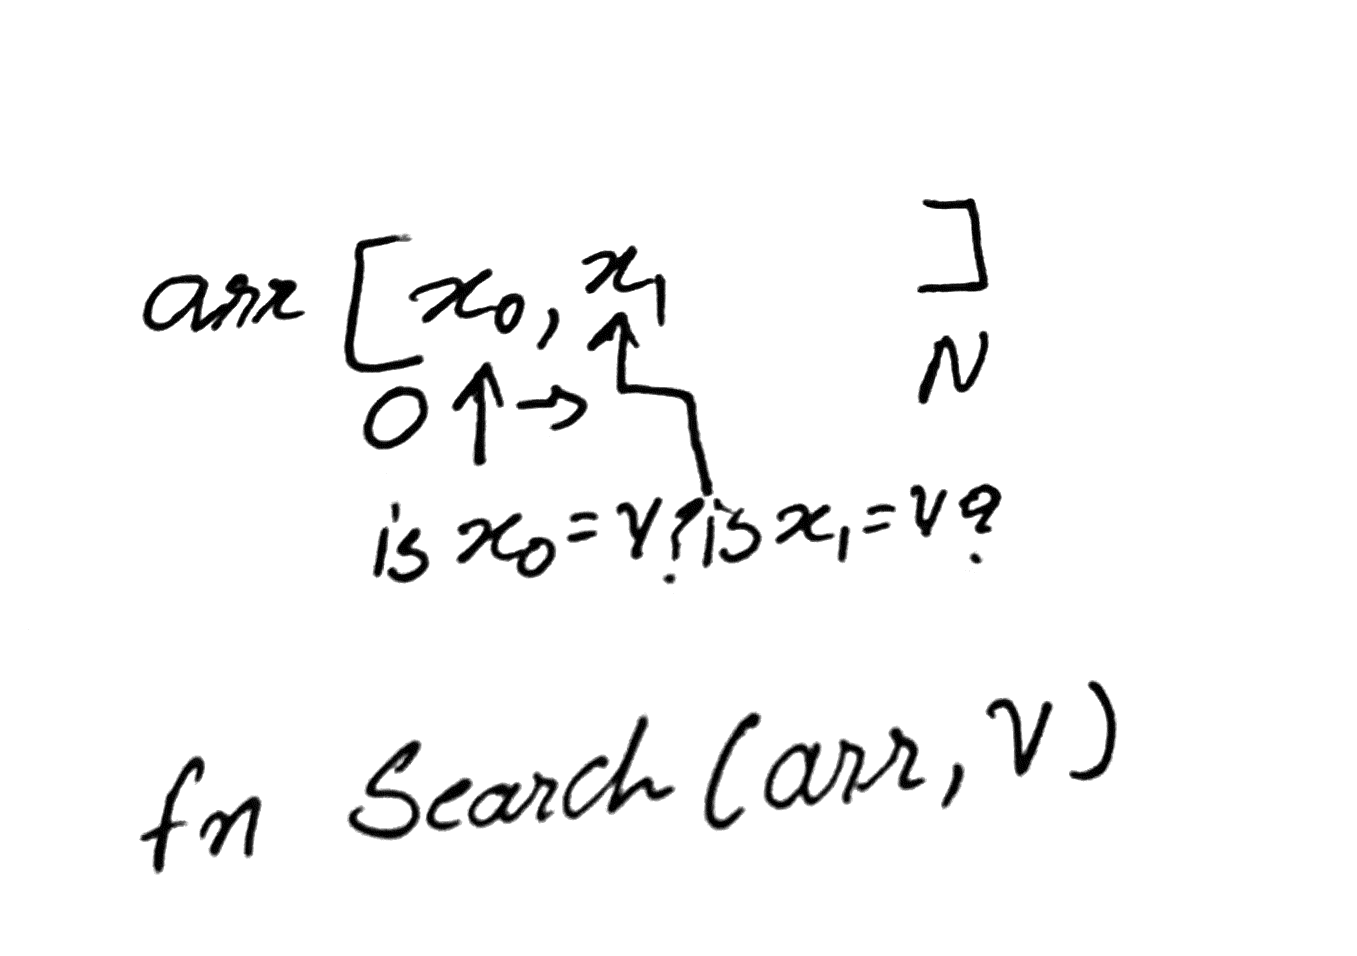 arr [x₀, x₁ ]
0 ↑ → N
is x₀ = v? is x₁ = v?
fn Search (arr, v)